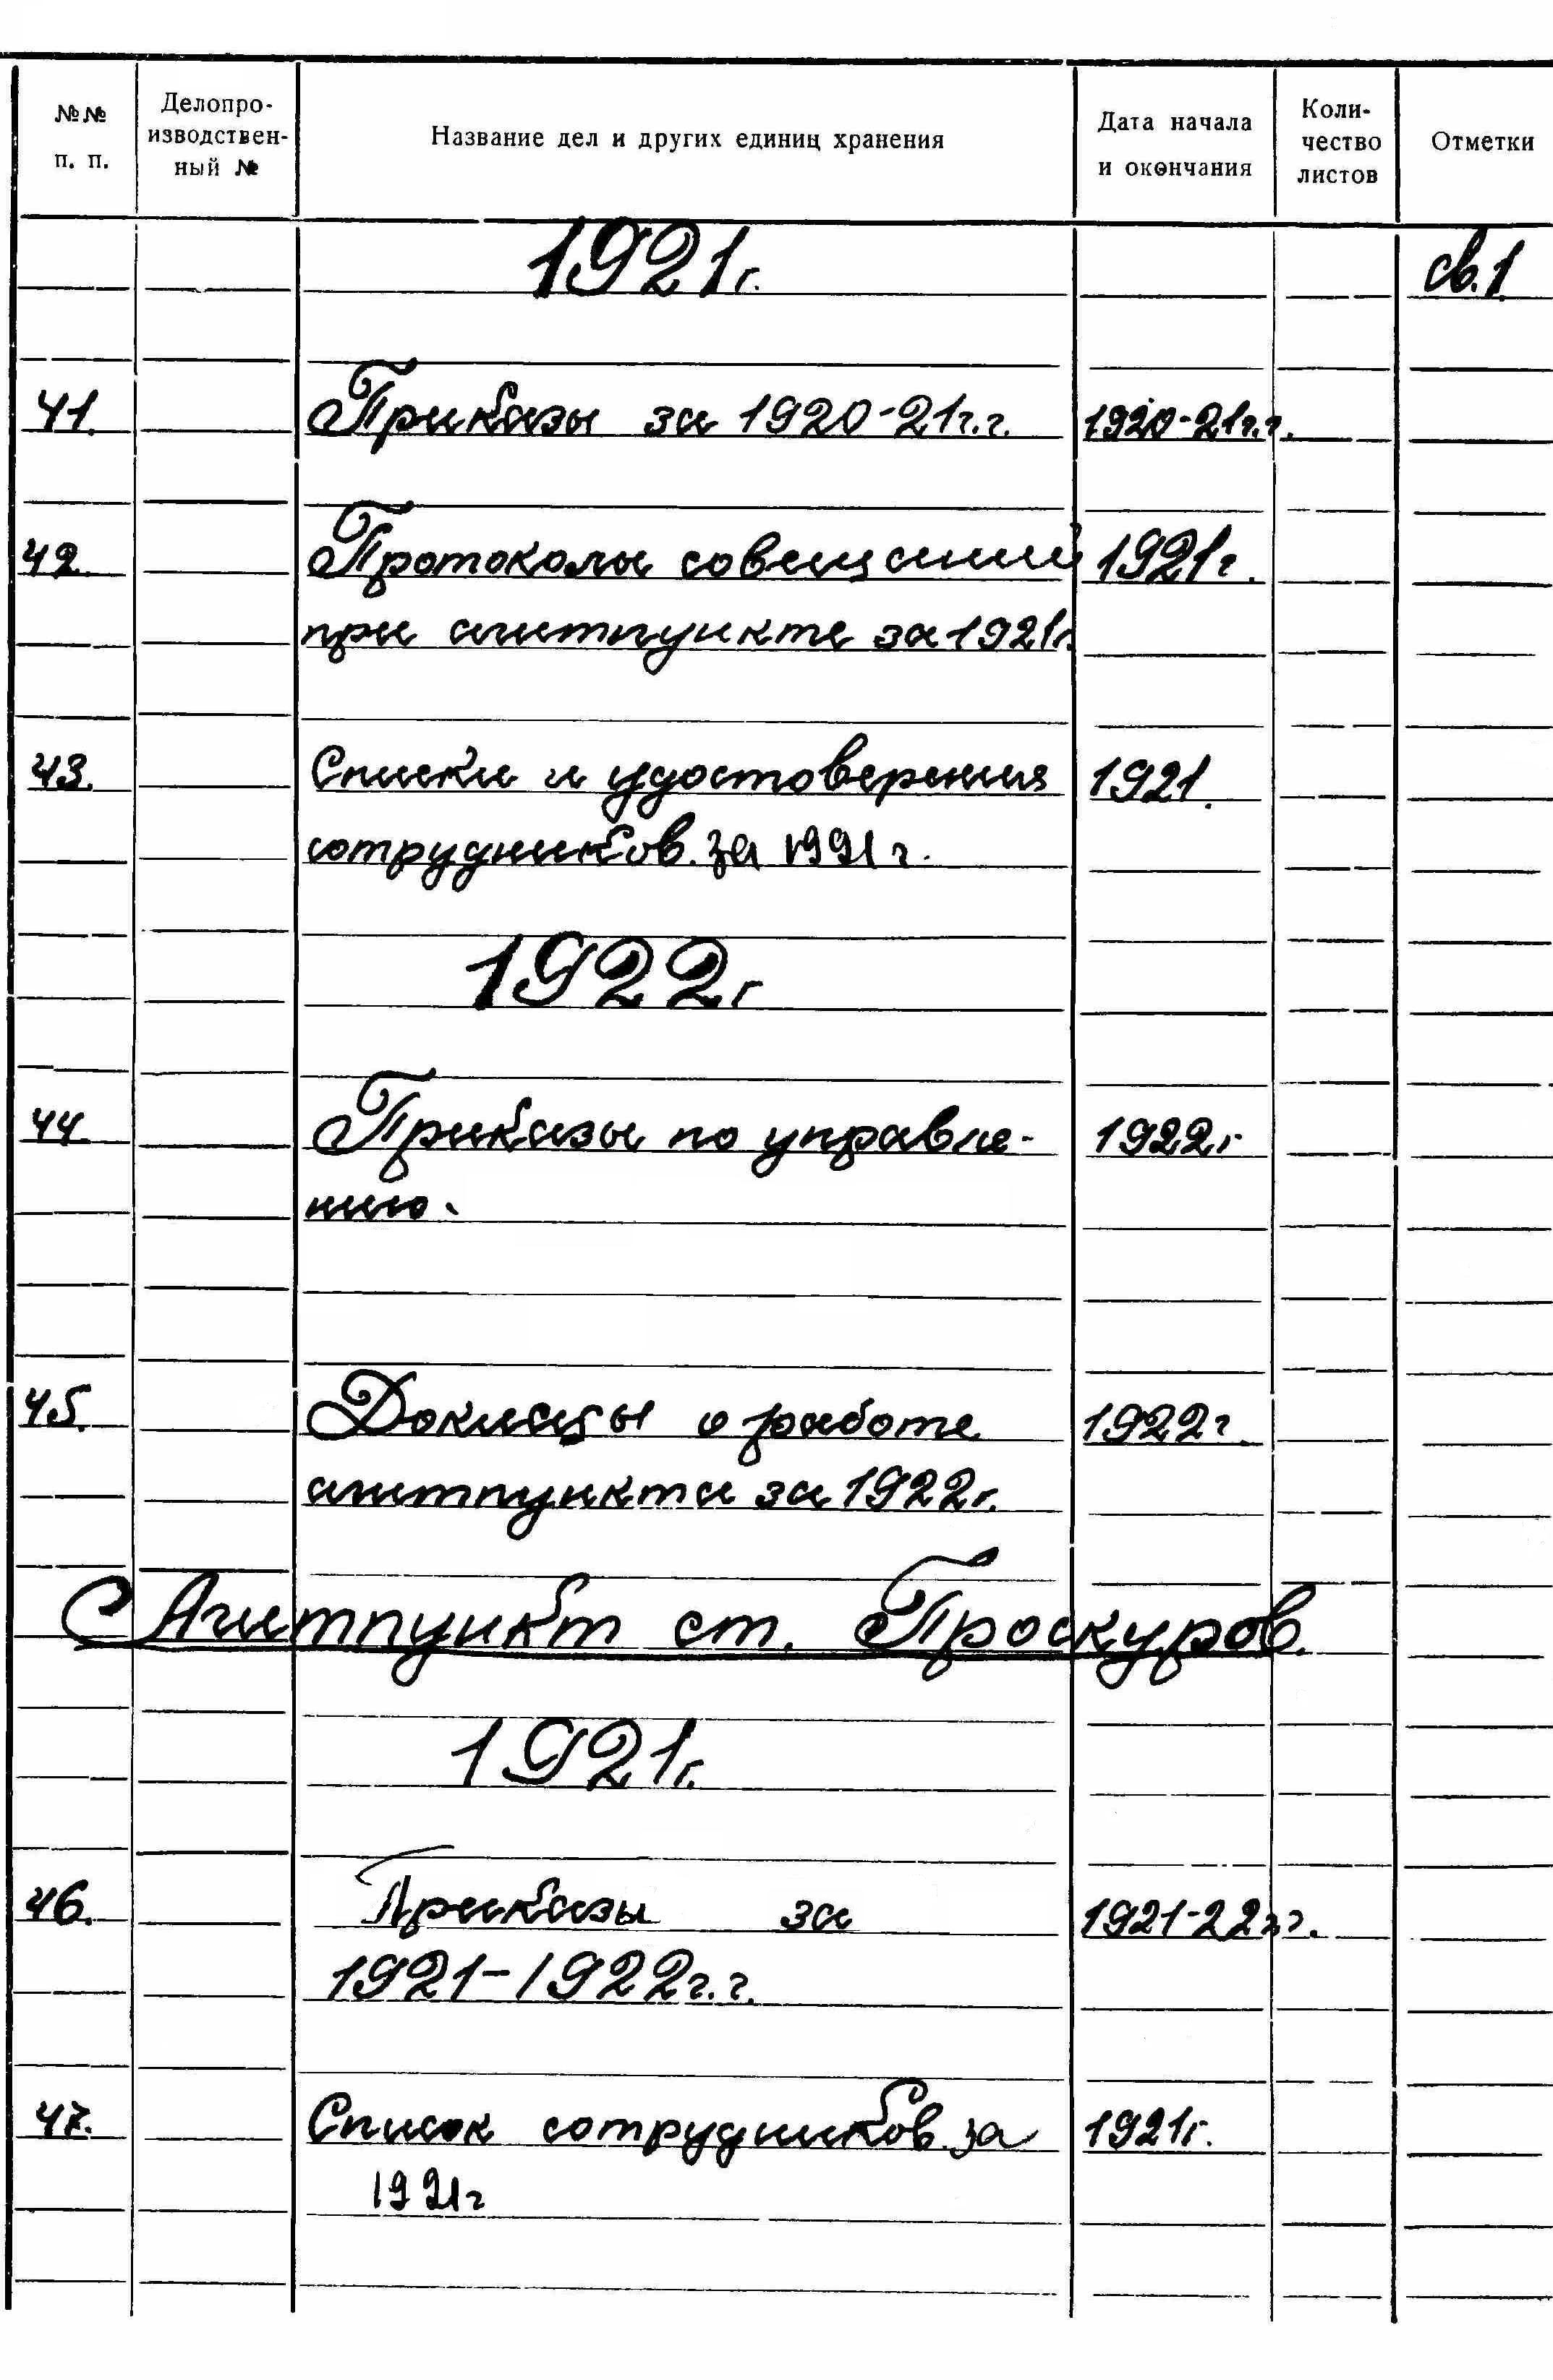 №№ п. п.
Делопро-
изводствен-
ный №
Название дел и других единиц хранения
Дата начала
и окончания
Коли-
чество
листов
Отметки
1921г. св.1
41. Приказы за 1920-21г.г. 1920-21г.г.
42. Протоколы совещаний 1921г.
при агитпункте за 1921г.
43. Списки и удостоверения 1921.
сотрудников за 1921г.
1922г
44. Приказы по управле- 1922г.
нию.
45. Доклады о работе 1922г.
агитпункта за 1922г.
Агитпункт ст. Проскуров.
1921г.
46. Приказы за 1921-22г.г.
1921-1922г.г.
47. Список сотрудников за 1921г.
1921г